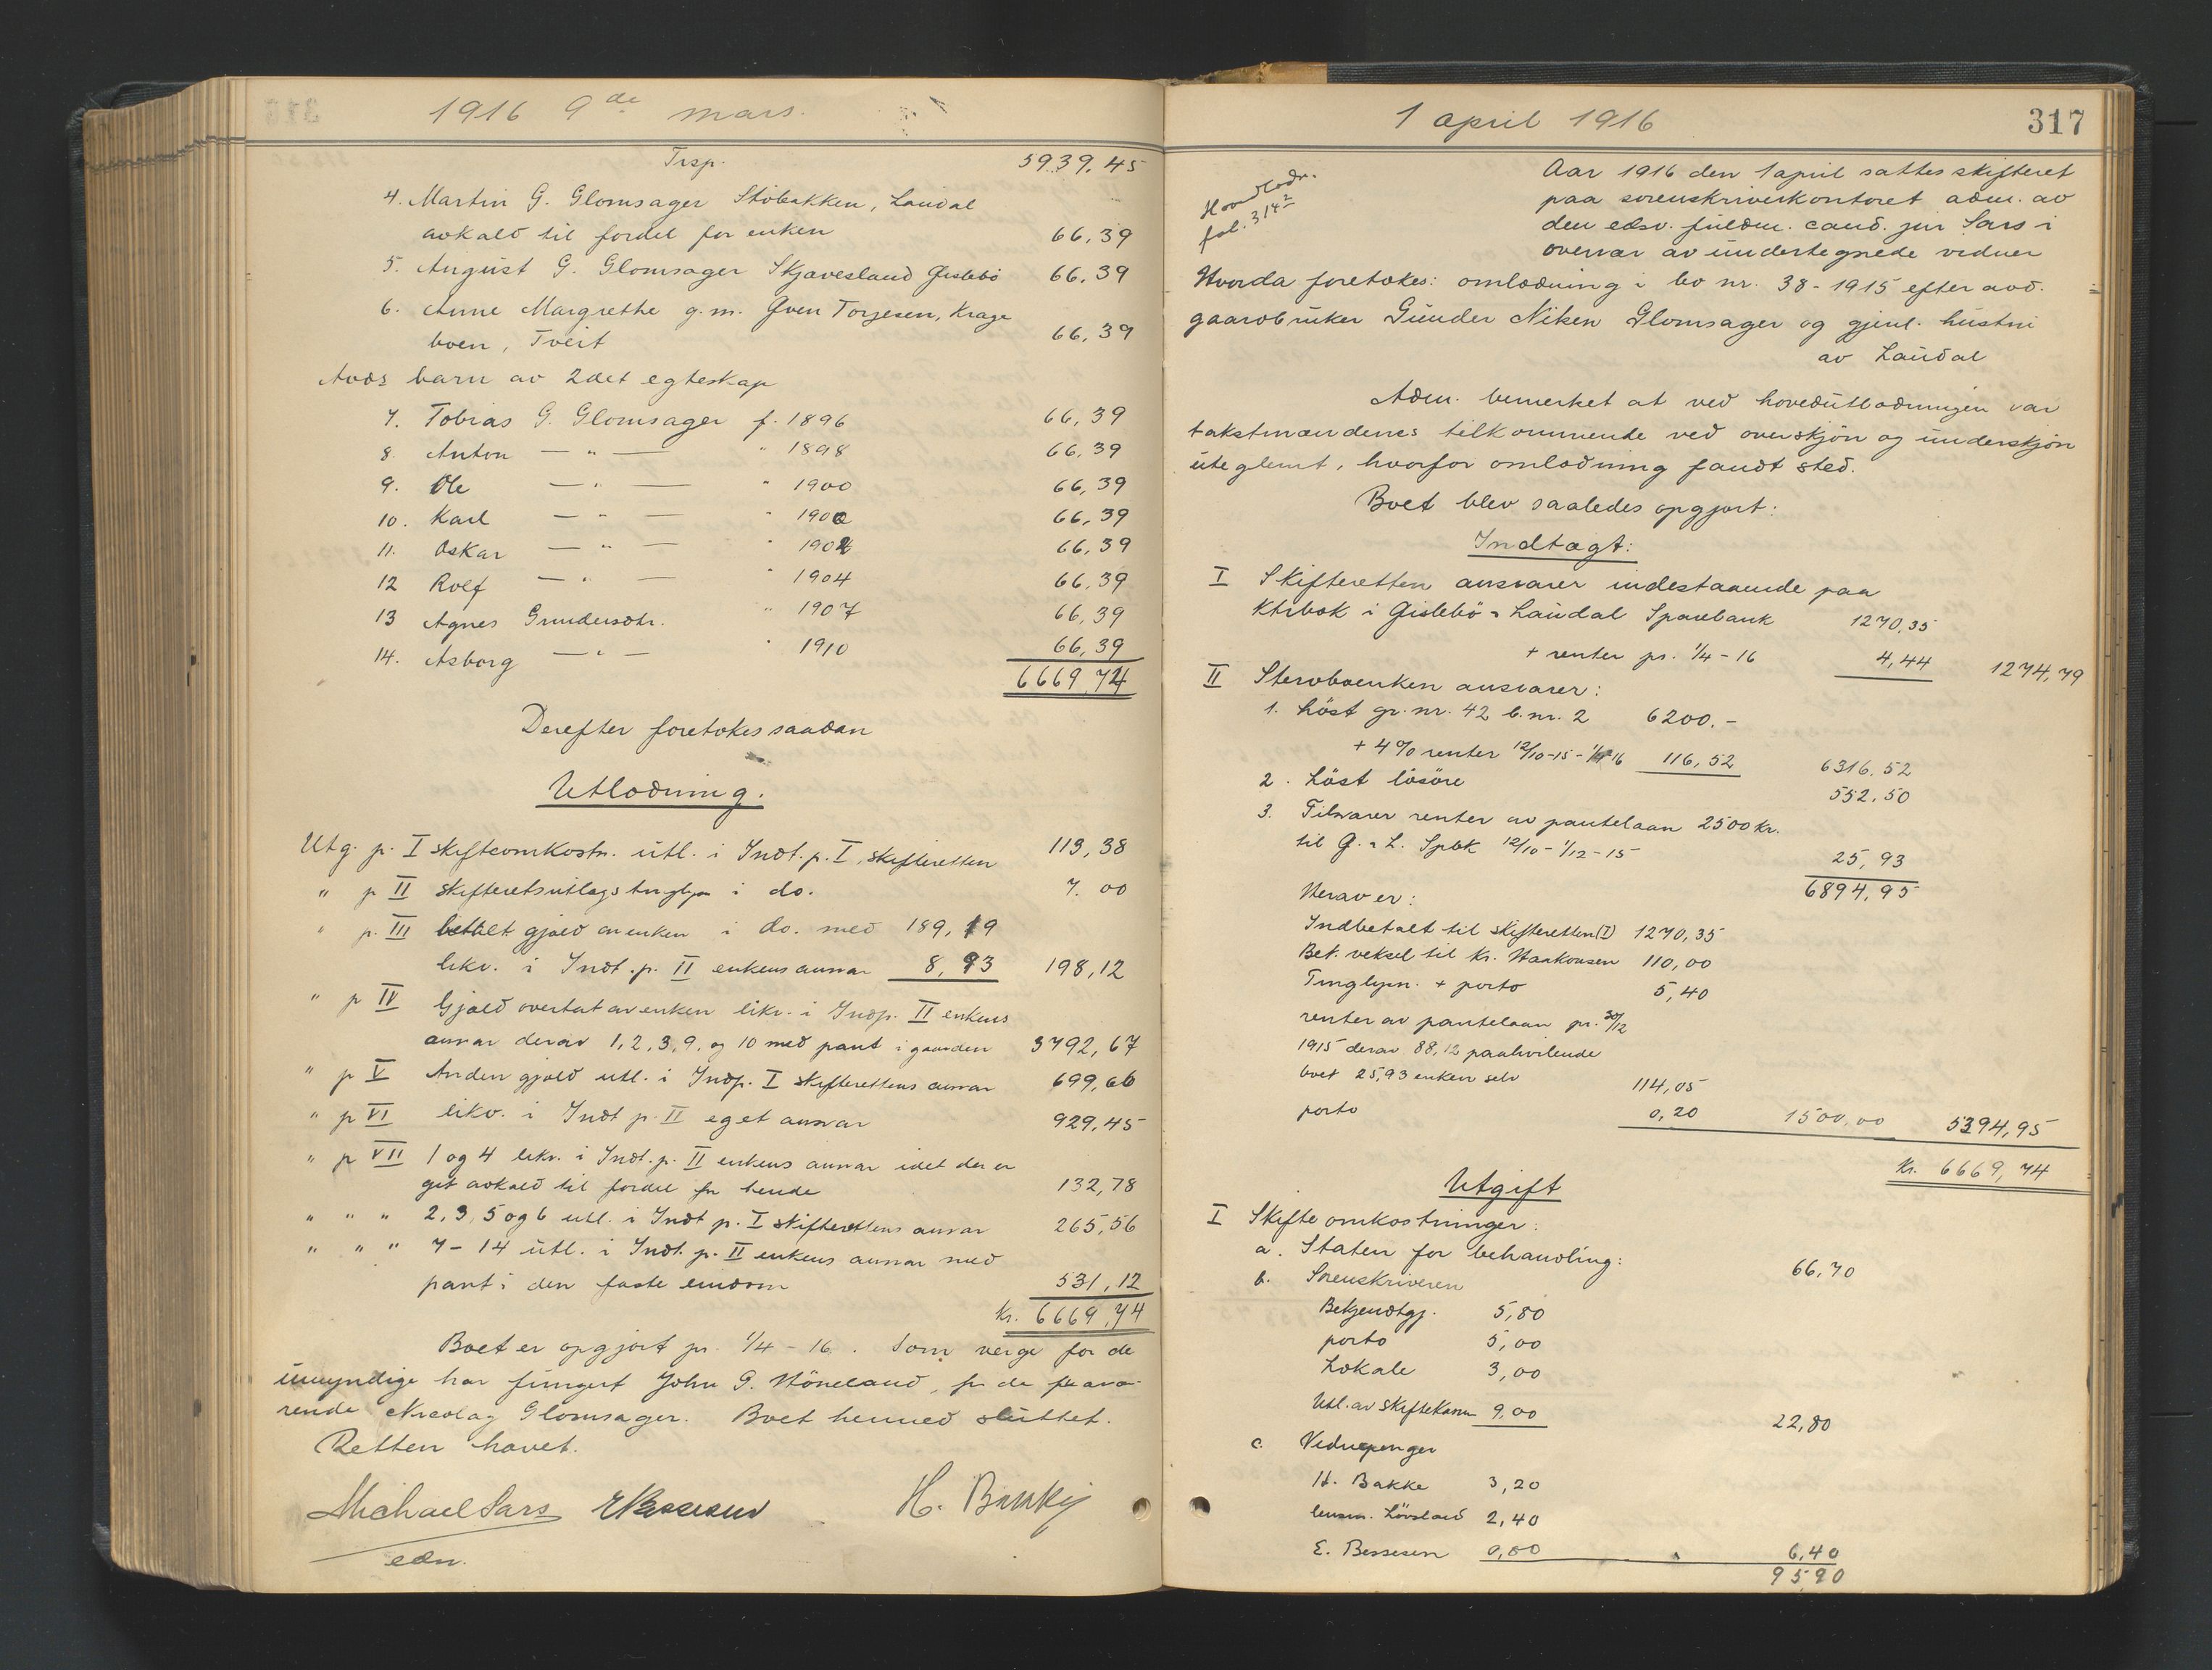 1916 9de mars.
Trsp. 5939,45
4. Martin G. Glomsager Stöbakken, Laudal
avkald til fordel for enken 66,39
5. August G. Glomsager Skjævesland Øislebö 66,39
6. Anne Margrethe g.m. Even Torjesen, Krage
boen, Tveit 66,39
Avds barn av 2det egteskap
7. Tobias G. Glomsager f. 1896 66,39
8. Anton — " — " 1898 66,39
9. Ole — " — " 1900 66,39
10. Karl — " — " 1900 66,39
11. Oskar — " — " 1902 66,39
12 Rolf — " — " 1904 66,39
13 Agnes Gundersdtr. " 1907 66,39
14. Asborg — " — " 1910 66,39
6669,74
Derefter foretokes saadan
Utlodning.
Utg. p. I skifteomkostn. utl. i Indt. p. I, skifteretten 113,38
" p II skifteretsutlægs tinglysn i do. 7.00
" p. III betalt gjæld av enken i do. med 189,19
likv. i Indt. p. II enkens ansvar 8,93 198,12
" p IV Gjæld overtat av enken likv. i Indp. II enkens
ansvar derav 1, 2, 3, 9, og 10 med pant i gaarden 3792,67
" p V Anden gjæld utl. i Indp. I skifterettens ansvar 699,66
" p VI likv. i Indt p. II eget ansvar 929,45
" p VII 1 og 4 likv. i Indt. p. II enkens ansvar idet der er
git avkald til fordel for hende 132,78
" " " 2, 3, 5 og 6 utl. i Indt p. I skifterettens ansvar 265,56
" " " 7-14 utl. i Indt. p. II enkens ansvar med
pant i den faste eiendom 531,12
Kr. 6669,74
Boet er opgjort pr. 1/4 - 16. Som verge for de
umyndige har fungert John G. Höneland, for de fravæ-
rende Nicolay Glomsager. Boet hermed sluttet.
Retten hævet.
Michael Sars E Bessesen H. Bakke
edn.
1 april 1916
317
Hovedlodn.
fol. 314 2
Aar 1916 den 1 april sattes skifteret
paa sorenskriverkontoret adm. av
den edsv. fuldm. cand. jur Sars i
overvær av undertegnede vidner
Hvorda foretokes: omlodning i bo nr. 38-1915 efter avd.
gaardbruker Gunder Niken Glomsager og gjenl. hustru
av Laudal
Adm. bemerket at ved hovedutlodningen var
takstmændenes tilkommende ved overskjön og underskjön
uteglemt, hvorfor omlodning fandt sted.
Boet blev saaledes opgjort:
Indtægt:
I Skifteretten ansvarer indestaaende paa
Ktrbok i Øislebö & Laudal Sparebank 1270,35
+ renter pr. 1/4-16 4,44 1274,79
II Stervboenken ansvarer:
1. Löst gr. nr. 42 b. nr. 2 6200.-
+ 4% renter 12/10-15 - 1/4 16 116,52 6316,52
2. Löst lösöre 552,50
3. Tilsvarer renter av pantelaan 2500 Kr.
til Ø. & L. Spbk 12/10 - 1/12-15 25,93
6894,95
Herav er:
Indbetalt til skifteretten (I) 1270,35
Bet. veksel til Kr. Haakonsen 110,00
Tinglysn. + porto 5,40
renter av pantelaan pr. 30/12
1915 derav 88,12 paahvilende
boet 25,93 enken selv 114,05
porto 0,20 1500,00 5394,95
Kr. 6669,74
Utgift
I Skifteomkostninger:
a. Staten for behandling: 66,70
b. Sorenskriveren
Bekjendtgj. 5,80
porto 5,00
Lokale 3,00
Utl. av skiftekann 9,00 22,80
c. Vidnepenger
H. Bakke 3,20
lensm. Lövsland 2,40
E. Bessesen 0,80 6,40
95,90